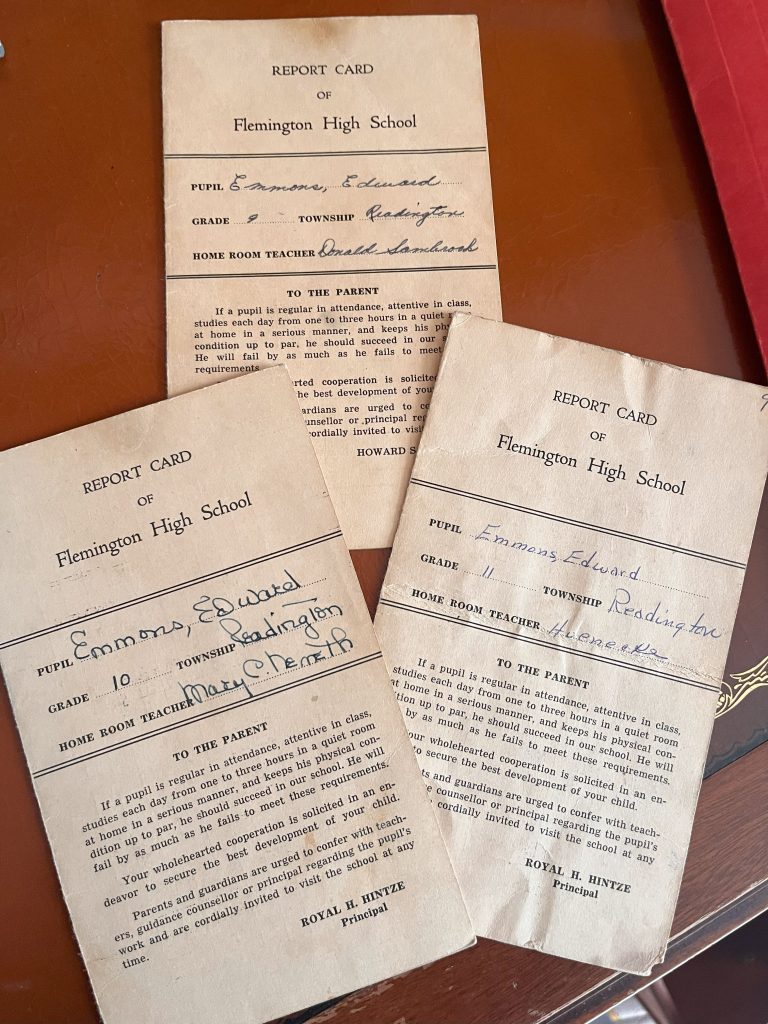 REPORT CARD
OF
Flemington High School
PUPIL Emmons, Edward
GRADE 9 TOWNSHIP Readington
HOME ROOM TEACHER Donald Sambrook
TO THE PARENT
If a pupil is regular in attendance, attentive in class,
studies each day from one to three hours in a quiet
at home in a serious manner, and keeps his
condition up to par, he should succeed in our
He will fail by as much as he fails to meet
requirements.
cooperation is solicited
he best development of
are urged to
or principal
cordially invited to
HOWARD
REPORT CARD
OF
Flemington High School
PUPIL Emmons, Edward
GRADE 10 TOWNSHIP Readington
HOME ROOM TEACHER Mary C Nemeth
TO THE PARENT
If a pupil is regular in attendance, attentive in class,
studies each day from one to three hours in a quiet room
at home in a serious manner, and keeps his physical con-
dition up to par, he should succeed in our school. He will
fail by as much as he fails to meet these requirements.
Your wholehearted cooperation is solicited in an en-
deavor to secure the best development of your child.
Parents and guardians are urged to confer with teach-
ers, guidance counsellor or principal regarding the pupil's
work and are cordially invited to visit the school at any
time.
ROYAL H. HINTZE
Principal
REPORT CARD
OF
Flemington High School
PUPIL Emmons, Edward
GRADE 11 TOWNSHIP Readington
HOME ROOM TEACHER
TO THE PARENT
If a pupil is regular in attendance, attentive in class,
studies each day from one to three hours in a quiet room
at home in a serious manner, and keeps his physical con-
ition up to par, he should succeed in our school. He will
by as much as he fails to meet these requirements.
our wholehearted cooperation is solicited in an en-
to secure the best development of your child.
and guardians are urged to confer with teach-
counsellor or principal regarding the pupil's
cordially invited to visit the school at any
ROYAL H. HINTZE
Principal